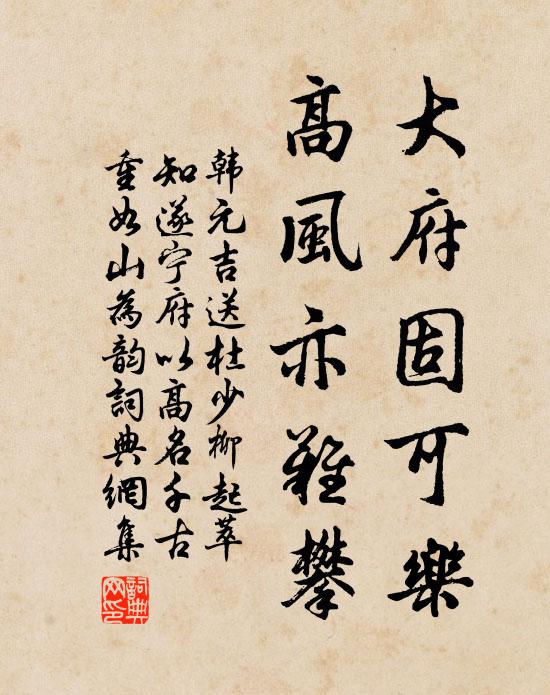 大府固可樂
高風亦難攀
韩元吉送杜少卿起萃
知遂宁府以高名千古
重如山為韵詞典網集
詞典
网印